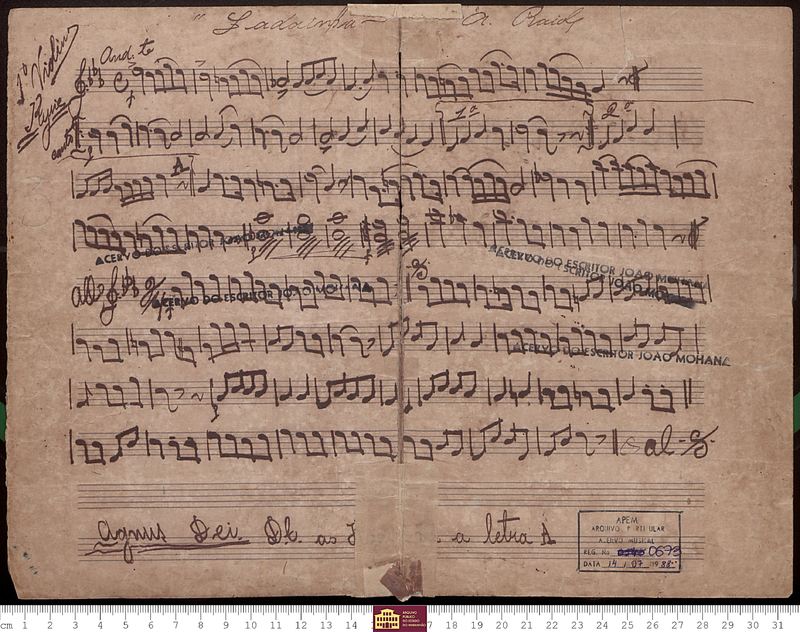 "Ladainha" A. Raiol
1º Violino
Kyrie
And.te
1ª 2ª
A
ACERVO DO ESCRITOR
ACERVO DO ESCRITOR JOÃO MOHANA
ACERVO DO ESCRITOR JOÃO MOHANA
ACERVO DO ESCRITOR JOÃO MOHANA
All.º
ACERVO DO ESCRITOR JOÃO MOHANA
al
Agnus Dei. D.C. ao
a letra A
APEM
ARQUIVO PARTICULAR
ACERVO MUSICAL
REG. No 0673
DATA 14 / 07 / 1988
cm 1 2 3 4 5 6 7 8 9 10 11 12 13 14 17 18 19 20 21 22 23 24 25 26 27 28 29 30 31
ARQUIVO
PÚBLICO
DO ESTADO
DO MARANHÃO